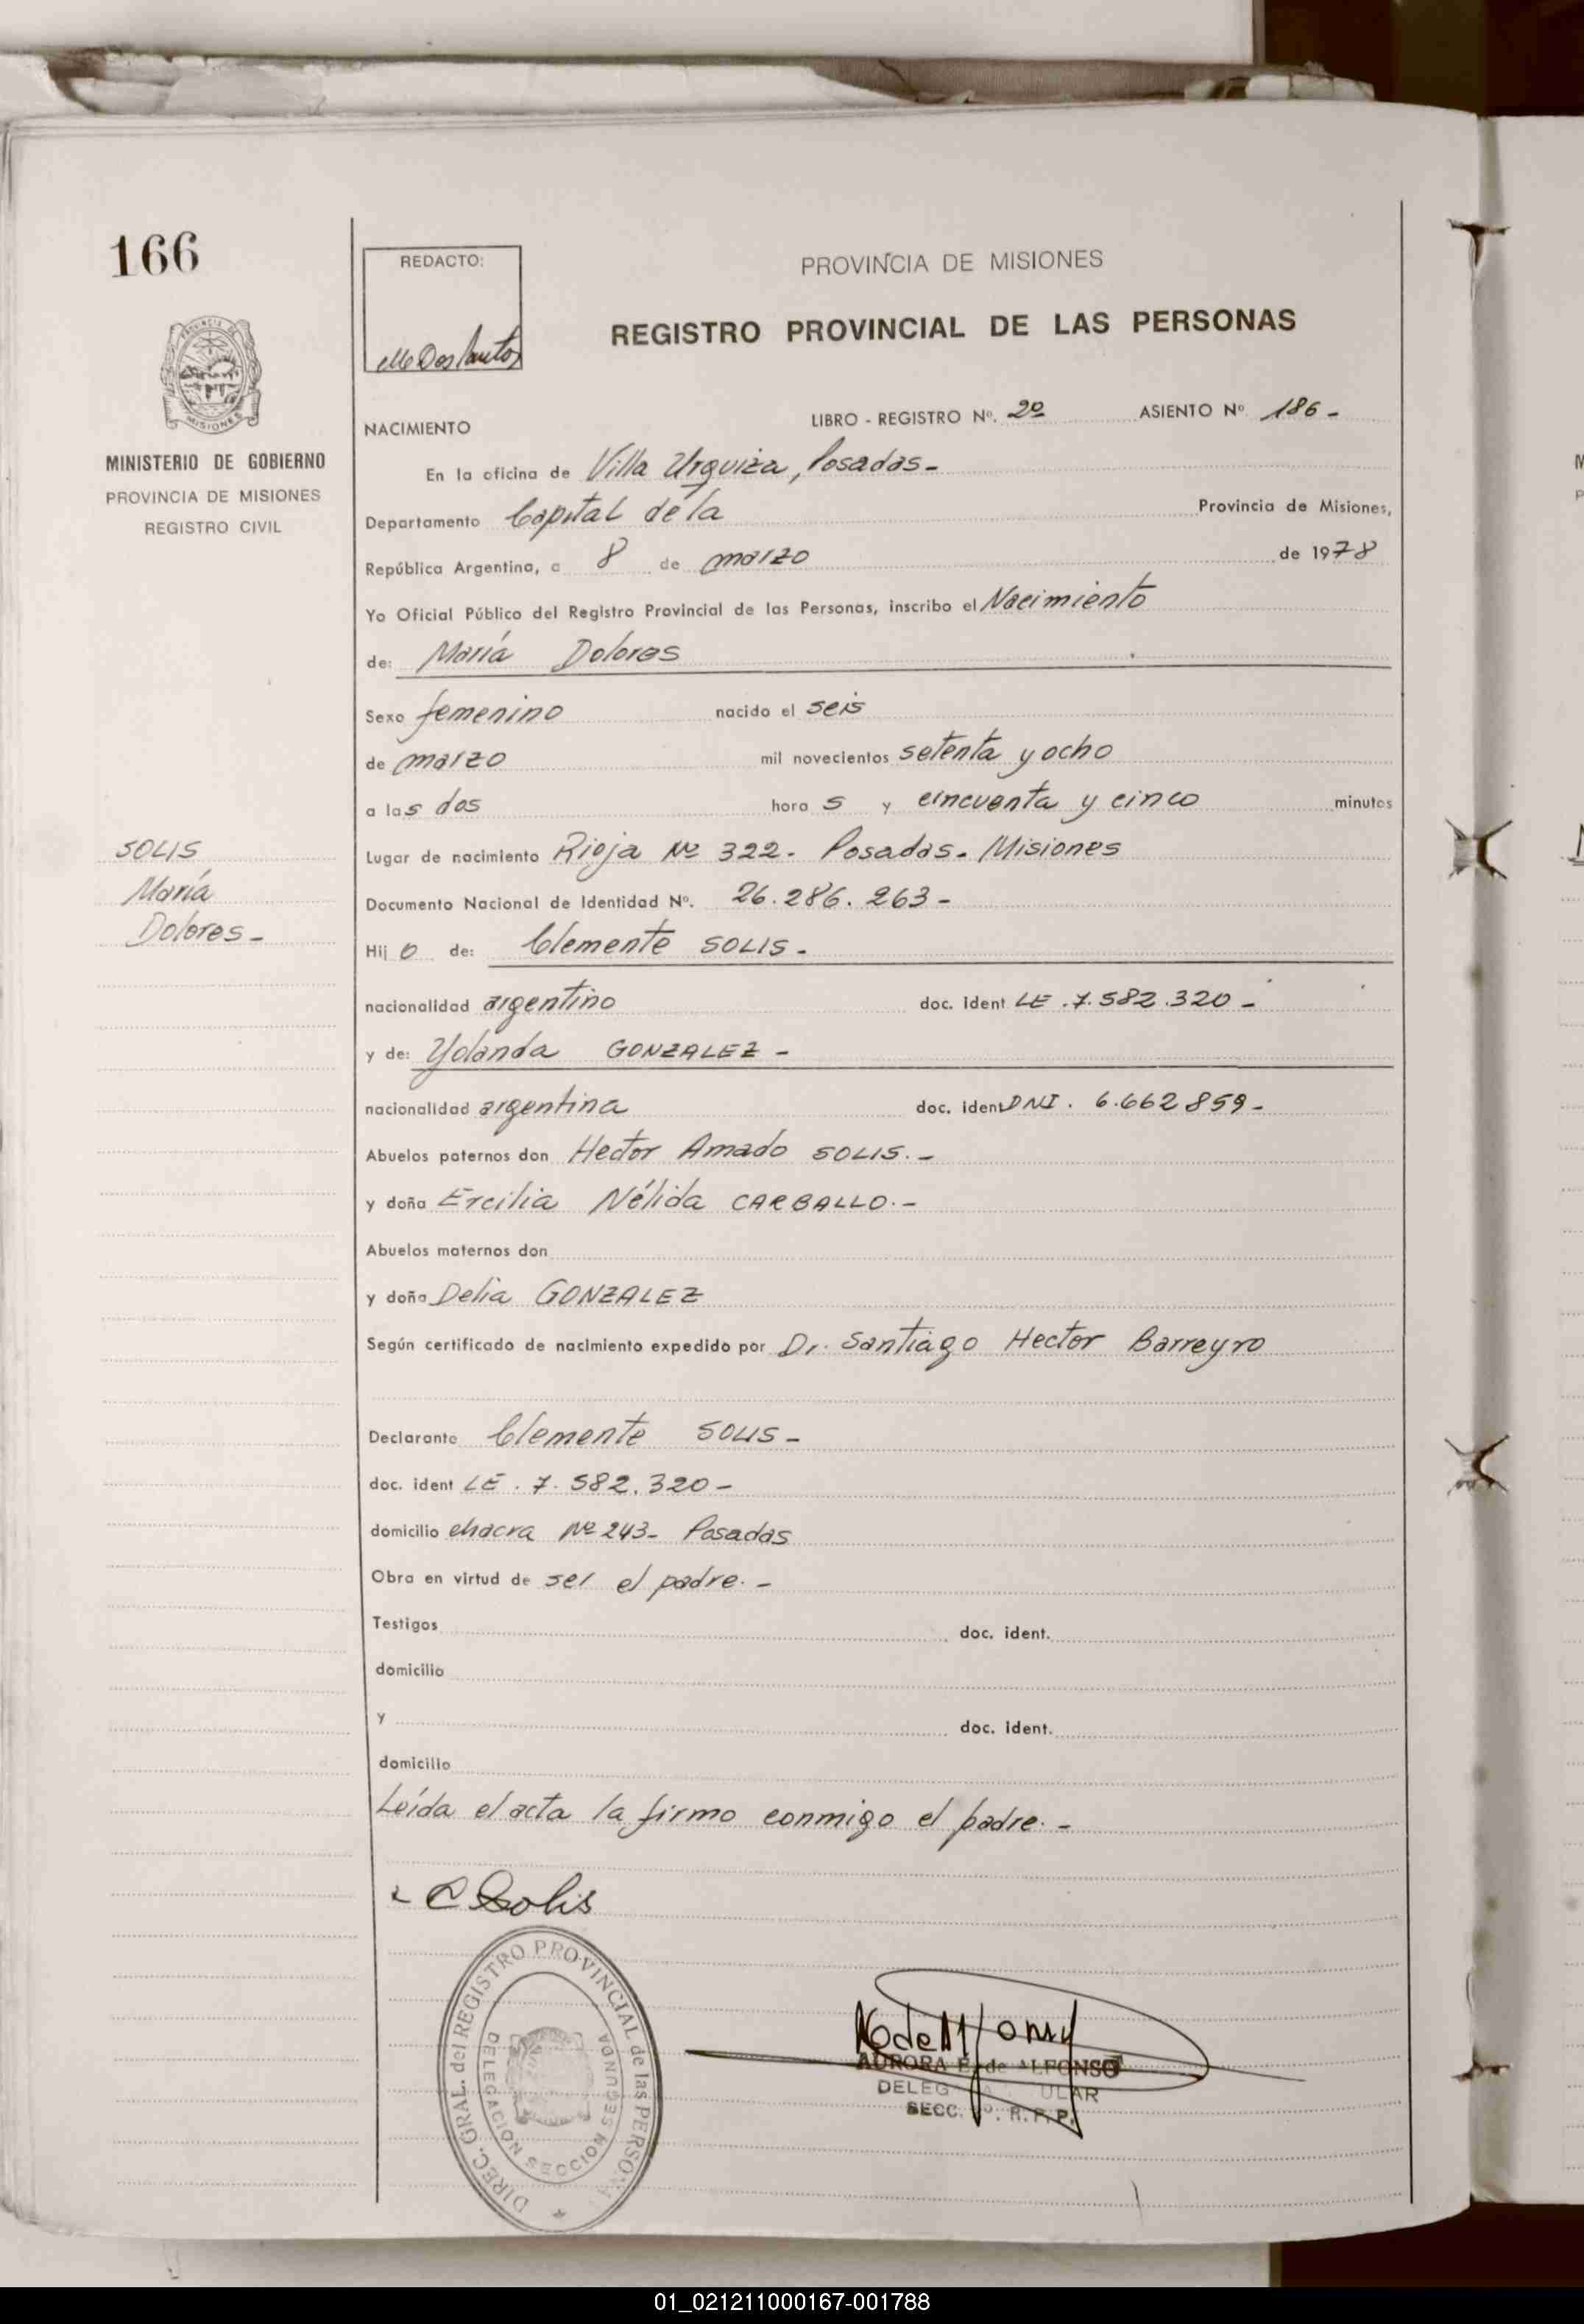 166
REDACTO:
PROVINCIA DE MISIONES
REGISTRO PROVINCIAL DE LAS PERSONAS
MINISTERIO DE GOBIERNO
PROVINCIA DE MISIONES
REGISTRO CIVIL
NACIMIENTO
LIBRO - REGISTRO Nº. 2º ASIENTO Nº 186 -
En la oficina de Villa Urquiza, Posadas -
Departamento Capital de la Provincia de Misiones,
República Argentina, a 8 de marzo de 1978
Yo Oficial Público del Registro Provincial de las Personas, inscribo el Nacimiento
de: María Dolores
Sexo femenino nacido el seis
de marzo mil novecientos setenta y ocho
a las dos hora s y cincuenta y cinco minutos
SOLIS
María
Dolores -
Lugar de nacimiento Rioja Nº 322 - Posadas - Misiones
Documento Nacional de Identidad Nº. 26.286.263 -
Hij o de: Clemente SOLIS -
nacionalidad argentino doc. ident LE . 7.582.320 -
y de: Yolanda GONZALEZ -
nacionalidad argentina doc. ident DNI . 6.662859 -
Abuelos paternos don Hector Amado SOLIS. -
y doña Ercilia Nélida CARBALLO. -
Abuelos maternos don
y doña Delia GONZALEZ
Según certificado de nacimiento expedido por Dr. Santiago Hector Barreyro
Declarante Clemente SOLIS -
doc. ident LE . 7.582.320 -
domicilio chacra Nº 243 - Posadas
Obra en virtud de ser el padre. -
Testigos doc. ident.
domicilio
y doc. ident.
domicilio
Leída el acta la firmo conmigo el padre. -
C Solis
DIREC. GRAL. del REGISTRO PROVINCIAL de las PERSONAS
DELEGACION SECCION SEGUNDA
AURORA E. de ALFONSO
SECC. R.P.P.
01_021211000167-001788